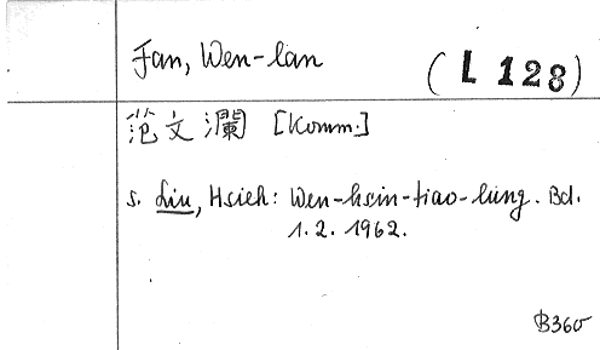 Fan, Wen-lan
(L 128)
范文瀾 [Komm.]
s. Liu, Hsieh: Wen-hsin-tiao-lung. Bd.
1.2. 1962.
B360